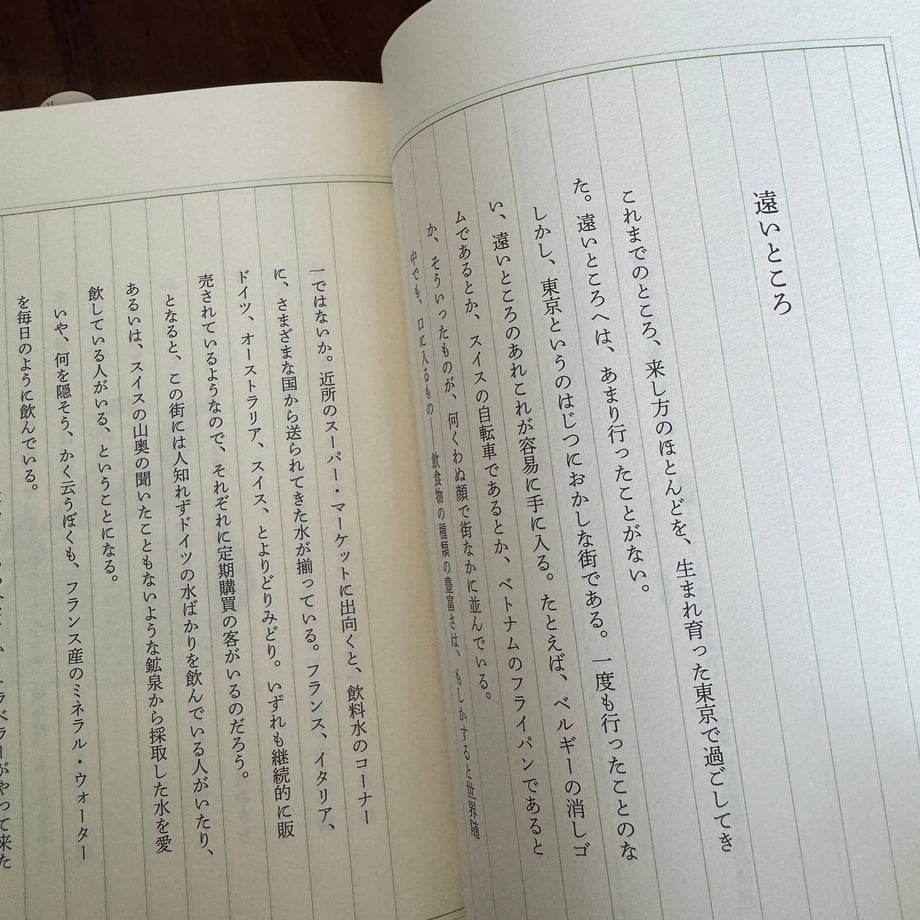 遠いところ
これまでのところ、来し方のほとんどを、生まれ育った東京で過ごしてき
た。遠いところへは、あまり行ったことがない。
しかし、東京というのはじつにおかしな街である。一度も行ったことのな
い、遠いところのあれこれが容易に手に入る。たとえば、ベルギーの消しゴ
ムであるとか、スイスの自転車であるとか、ベトナムのフライパンであると
か、そういったものが、何くわぬ顔で街なかに並んでいる。
中でも、口に入るもの——飲食物の種類の豊富さは、もしかすると世界随
一ではないか。近所のスーパー・マーケットに出向くと、飲料水のコーナー
に、さまざまな国から送られてきた水が揃っている。フランス、イタリア、
ドイツ、オーストラリア、スイス、とよりどりみどり。いずれも継続的に販
売されているようなので、それぞれに定期購買の客がいるのだろう。
となると、この街には人知れずドイツの水ばかりを飲んでいる人がいたり、
あるいは、スイスの山奥の聞いたこともないような鉱泉から採取した水を愛
飲している人がいる、ということになる。
いや、何を隠そう、かく云うぼくも、フランス産のミネラル・ウォーター
を毎日のように飲んでいる。
トラベラーがやって来た